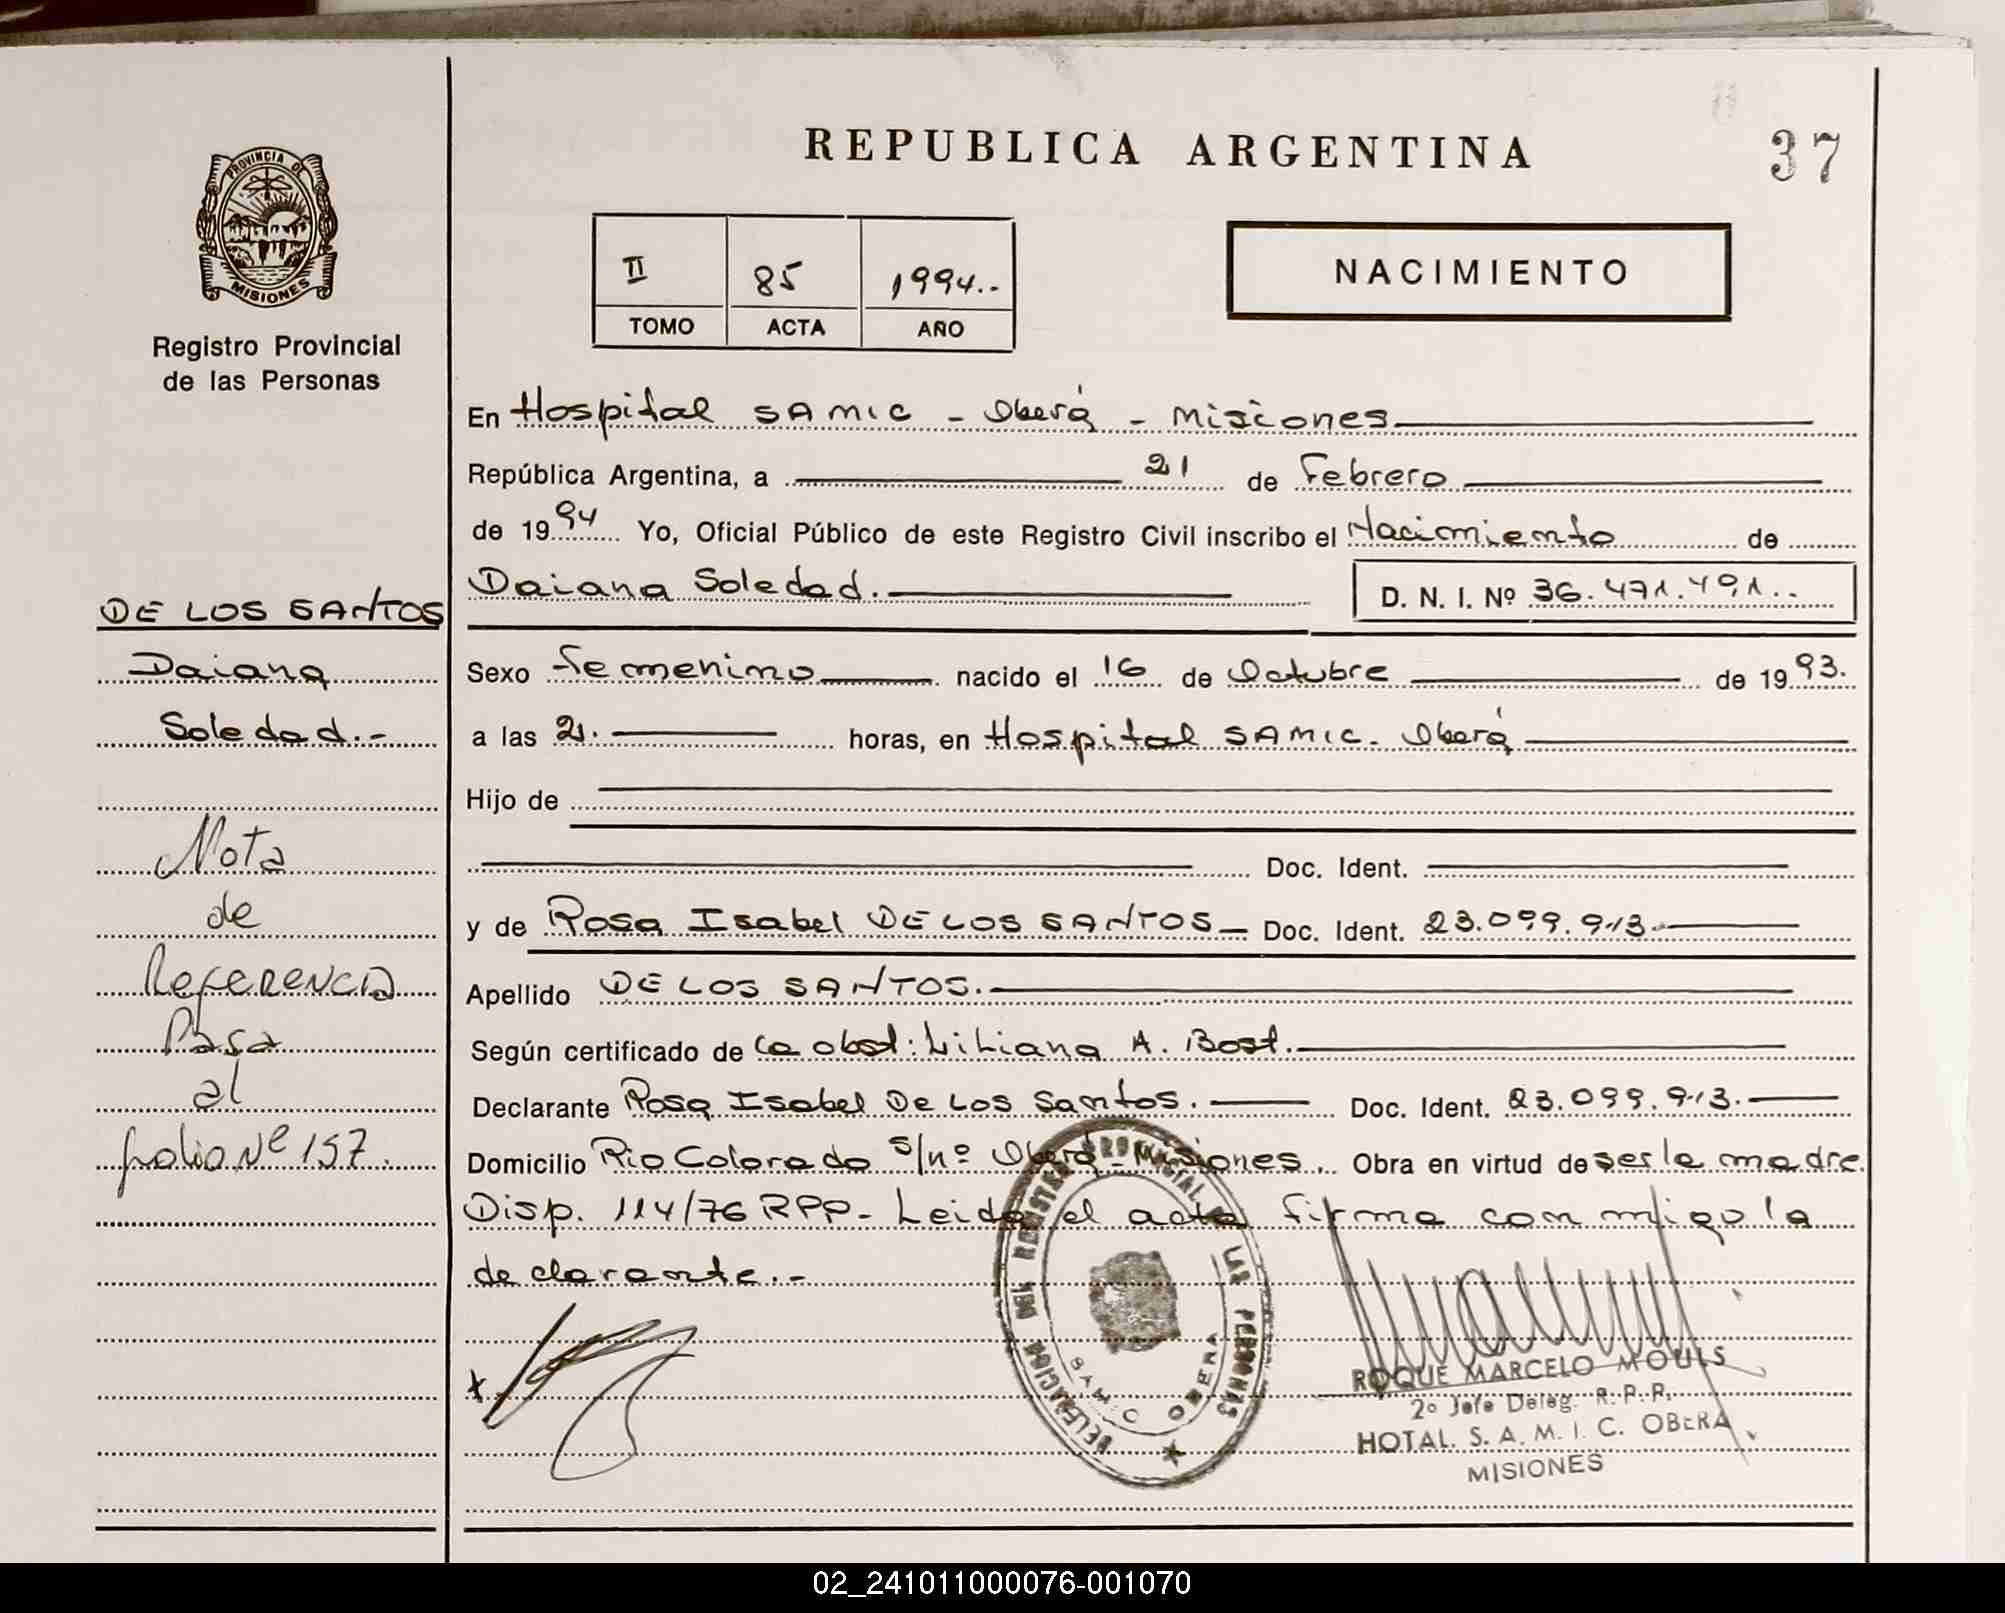 37
REPUBLICA ARGENTINA
PROVINCIA DE
MISIONES
Registro Provincial
de las Personas
II 85 1994.-
TOMO ACTA AÑO
NACIMIENTO
En Hospital SAMIC - Oberá - Misiones
República Argentina, a 21 de Febrero
de 1994 Yo, Oficial Público de este Registro Civil inscribo el Nacimiento de
Daiana Soledad. D. N. I. Nº 36.471.491..
Sexo Femenino nacido el 16 de Octubre de 1993.
a las 21. horas, en Hospital SAMIC. Oberá
Hijo de
Doc. Ident.
y de Rosa Isabel DE LOS SANTOS Doc. Ident. 23.099.913.
Apellido DE LOS SANTOS.
Según certificado de la obst: Liliana A. Bost.
Declarante Rosa Isabel De Los Santos. Doc. Ident. 23.099.913.
Domicilio Rio Colorado s/nº Oberá - Misiones. Obra en virtud de ser la madre.
Disp. 114/76 RPP- Leida el acta firma conmigo la
declarante.-
DE LOS SANTOS
Daiana
Soledad.-
Nota
de
Referencia
Pasa
al
folio Nº 157.
x
DELEGACION DEL REGISTRO PROVINCIAL DE LAS PERSONAS
SAMIC OBERA
ROQUE MARCELO MOULS
2º Jefe Deleg. R.P.P.
HOTAL. S. A. M. I. C. OBERA
MISIONES
02_241011000076-001070